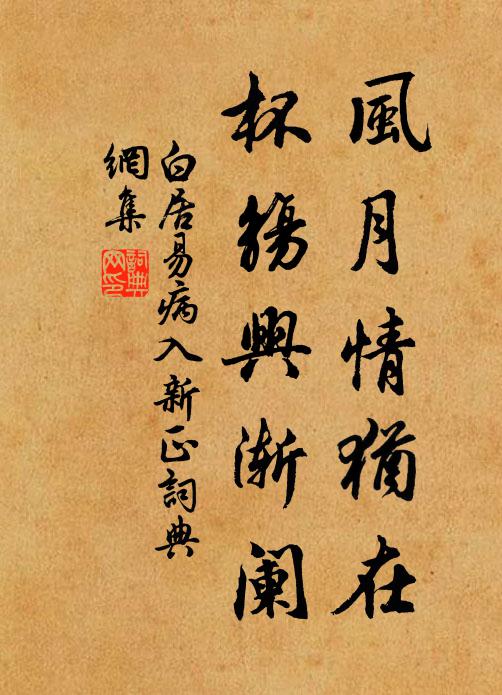 風月情猶在
杯觴興漸闌
白居易病入新正詞典
網集
詞典
网印